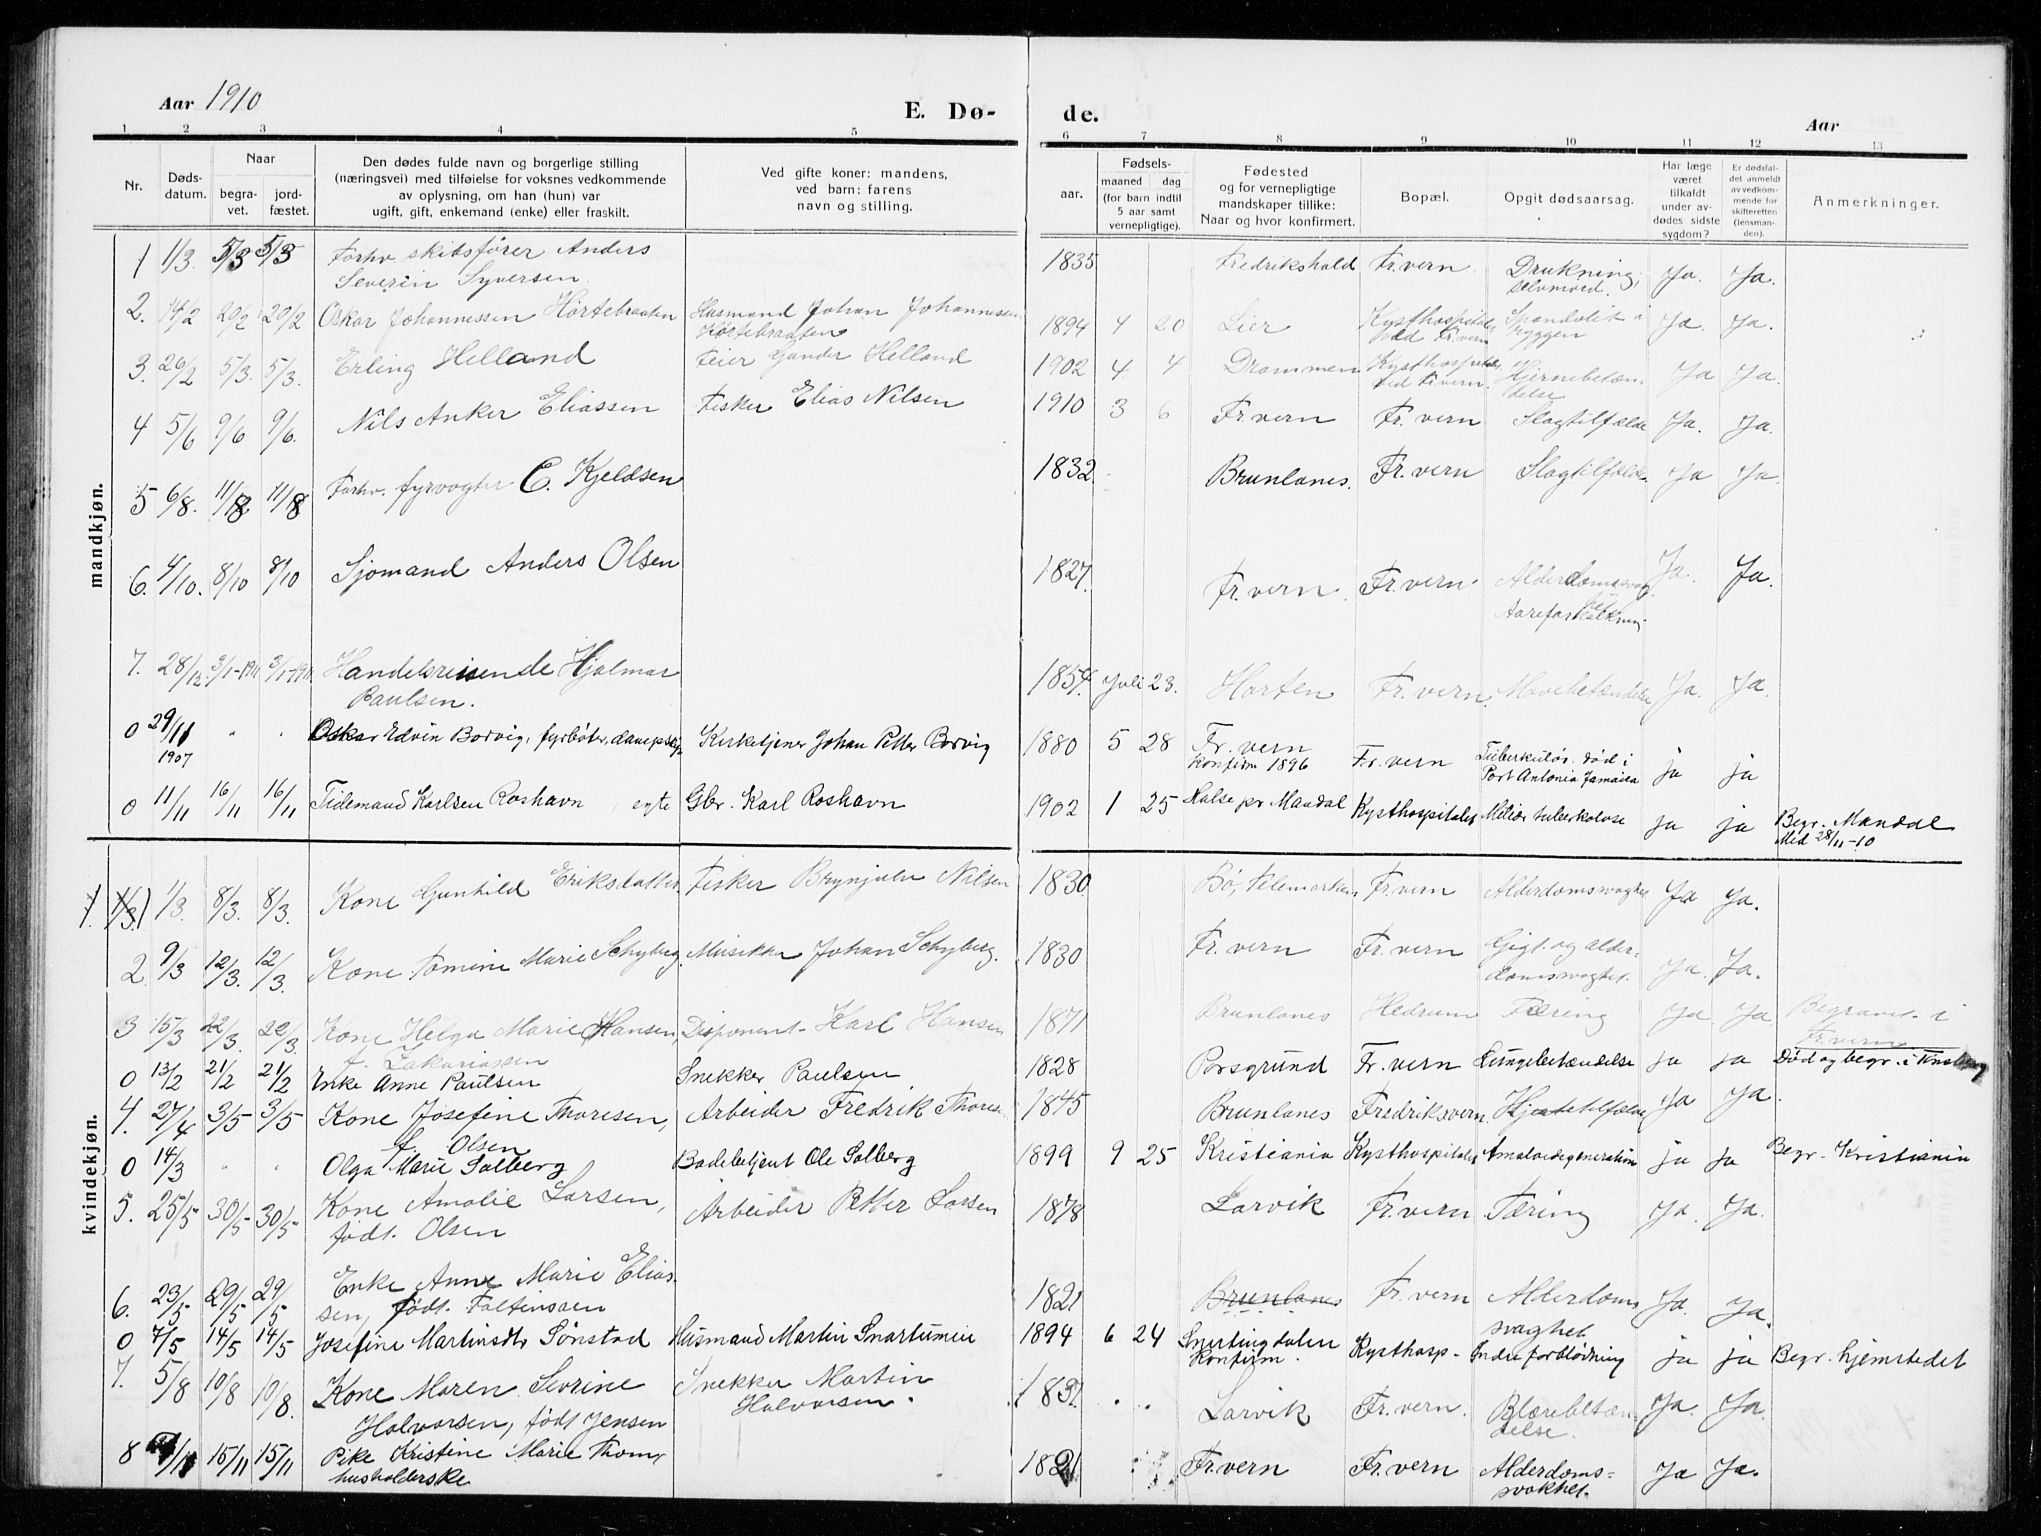 Aar 1910
E. Dø-
de.
Aar
1 2 3 4 5 6 7 8 9 10 11 12 13
Nr.
Døds-
datum.
Naar
begra-
vet.
jord-
fæstet.
Den dødes fulde navn og borgerlige stilling
(næringsvei) med tilføielse for voksnes vedkommende
av oplysning, om han (hun) var
ugift, gift, enkemand (enke) eller fraskilt.
Ved gifte koner: mandens,
ved barn: farens
navn og stilling.
aar.
Fødsels-
maaned dag
(for barn indtil
5 aar samt
vernepligtige).
Fødested
og for vernepligtige
mandskaper tillike:
Naar og hvor konfirmert.
Bopæl.
Opgit dødsaarsag.
Har læge
været
tilkaldt
under av-
dødes sidste
sygdom?
Er dødsfal-
det anmeldt
av vedkom-
mende for
skifteretten
(lensman-
den).
Anmerkninger.
mandkjøn.
1 1/3 5/3 5/3 Forhv. skibsfører Anders 1835 Fredrikshald Fr.vern. Drukning, Ja. Ja.
Severin Syversen. selvmord.
2. 14/2 20/2 20/2 Oskar Johannessen Hørtebraaten Husmand Johan Johannessen 1894 4 20 Lier Kysthospitalet Spondolit i Ja. Ja.
Hørtebraaten ved Fr.vern ryggen
3. 26/2 5/3. 5/3. Erling Helland Feier Gunder Helland 1902 4. 4 Drammen Kysthospitalet Hjernebetæn- Ja Ja.
ved Fr.vern. delse
4 5/6 9/6 9/6. Nils Anker Eliassen Fisker Elias Nilsen 1910 3 6 Fr.vern Fr. vern Slagtilfælde Ja. Ja.
5 6/8. 11/8 11/8 Forhv. fyrvogter C. Kjeldsen 1832. Brunlanes. Fr. vern Slagtilfælde. Ja Ja.
6. 4/10. 8/10 8/10 Sjømand Anders Olsen 1827. Fr. vern. Fr. vern. Alderdomssvag- Ja. Ja.
het Aareforkalkning
7. 28/12. 3/1-1911 3/1-1911 Handelsreisende Hjalmar 1854. Juli 23. Horten Fr. vern. Mavebetændelse Ja. Ja.
Paulsen.
0 29/11 1907 " " Oskar Edvin Borvig, fyrbøter, dampskip Kirketjener Johan Petter Borvig 1880 5 28 Fr. vern Fr. vern Tuberkuløs. død i ja ja
konfirm 1896 Port Antonio Jamaica
0 11/11 16/11 16/11 Tidemand Karlsen Roshavn, egte Gbr. Karl Roshavn 1902 1 25 Halse pr Mandal Kysthospitalet Miliær tuberkolose ja ja Begr. Mandal
Med 28/11-10
kvindekjøn.
1. 1/3) 1/3. 8/3. 8/3. Kone Gunhild Eriksdatter. Fisker Brynjulv Nilsen 1830. Bø, Telemarken Fr. vern Alderdomssvaghet Ja Ja.
2 9/3 12/3. 12/3. Kone Tomine Marie Schyberg. Musikker Johan Schyberg. 1830 Fr. vern Fr. vern Gigt. og alder- Ja. Ja.
domssvaghet.
3 15/3 22/3. 22/3. Kone Helga Marie Hansen, Disponent Karl Hansen 1871 Brunlanes Hedrum Tæring Ja Ja Begravet i
f. Zakariassen Fr.vern
0 13/2 21/2 21/2 Enke Anne Paulsen Snekker Paulsen 1828 Porsgrund Fr. vern Lungebetændelse ja ja Død og begr. i
4. 27/4 3/5 3/5 Kone Josefine Thoresen, Arbeider Fredrik Thores- 1845 Brunlanes Fredriksvern. Hjertetilfælde Ja Ja.
f. Olsen
0 14/3 " " Olga Marie Solberg Badebetjent Ole Solberg 1899 9 25 Kristiania Kysthospitalet Amoloidegeneration ja ja Begr. Kristiania
5. 25/5 30/5 30/5 Kone Amalie Larsen, Arbeider Petter Larsen 1878 Larvik Fr. vern Tæring Ja. Ja.
født. Olsen
6. 23/5 29/5 29/5 Enke Anne Marie Elias- 1821 Brunlanes Fr. vern Alderdoms Ja. Ja.
sen, født. Foltinssen svaghet
0 7/5 14/5 14/5 Josefine Martinsdtr Sønstad Husmand Martin Snartumeie 1894 6 24 Snertingdalen Kysthosp- Indre forblødning ja ja Begr. hjemstedet
Konfirm.
7. 5/8 10/8 10/8. Kone Maren Severine Snekker Martin 1831 . . Larvik Fr. vern. Blærebetæn- Ja. Ja.
Halvorsen, født Jensen Halvorsen. delse.
8 15/11 15/11 Pike Kristine Marie Thom, 1821 Fr.vern Fr. vern Alderdoms- Ja Ja.
husholderske svakhet.